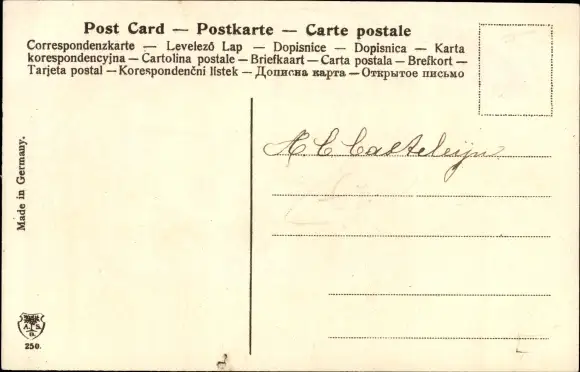 Post Card — Postkarte — Carte postale
Correspondenzkarte — Levelező Lap — Dopisnice — Dopisnica — Karta
korespondencyjna — Cartolina postale — Briefkaart — Carta postala — Brefkort —
Tarjeta postal — Korespondenční lístek — Дописна карта — Открытое письмо
Made in Germany.
A C Casteleijn
A. S.
B.
250.